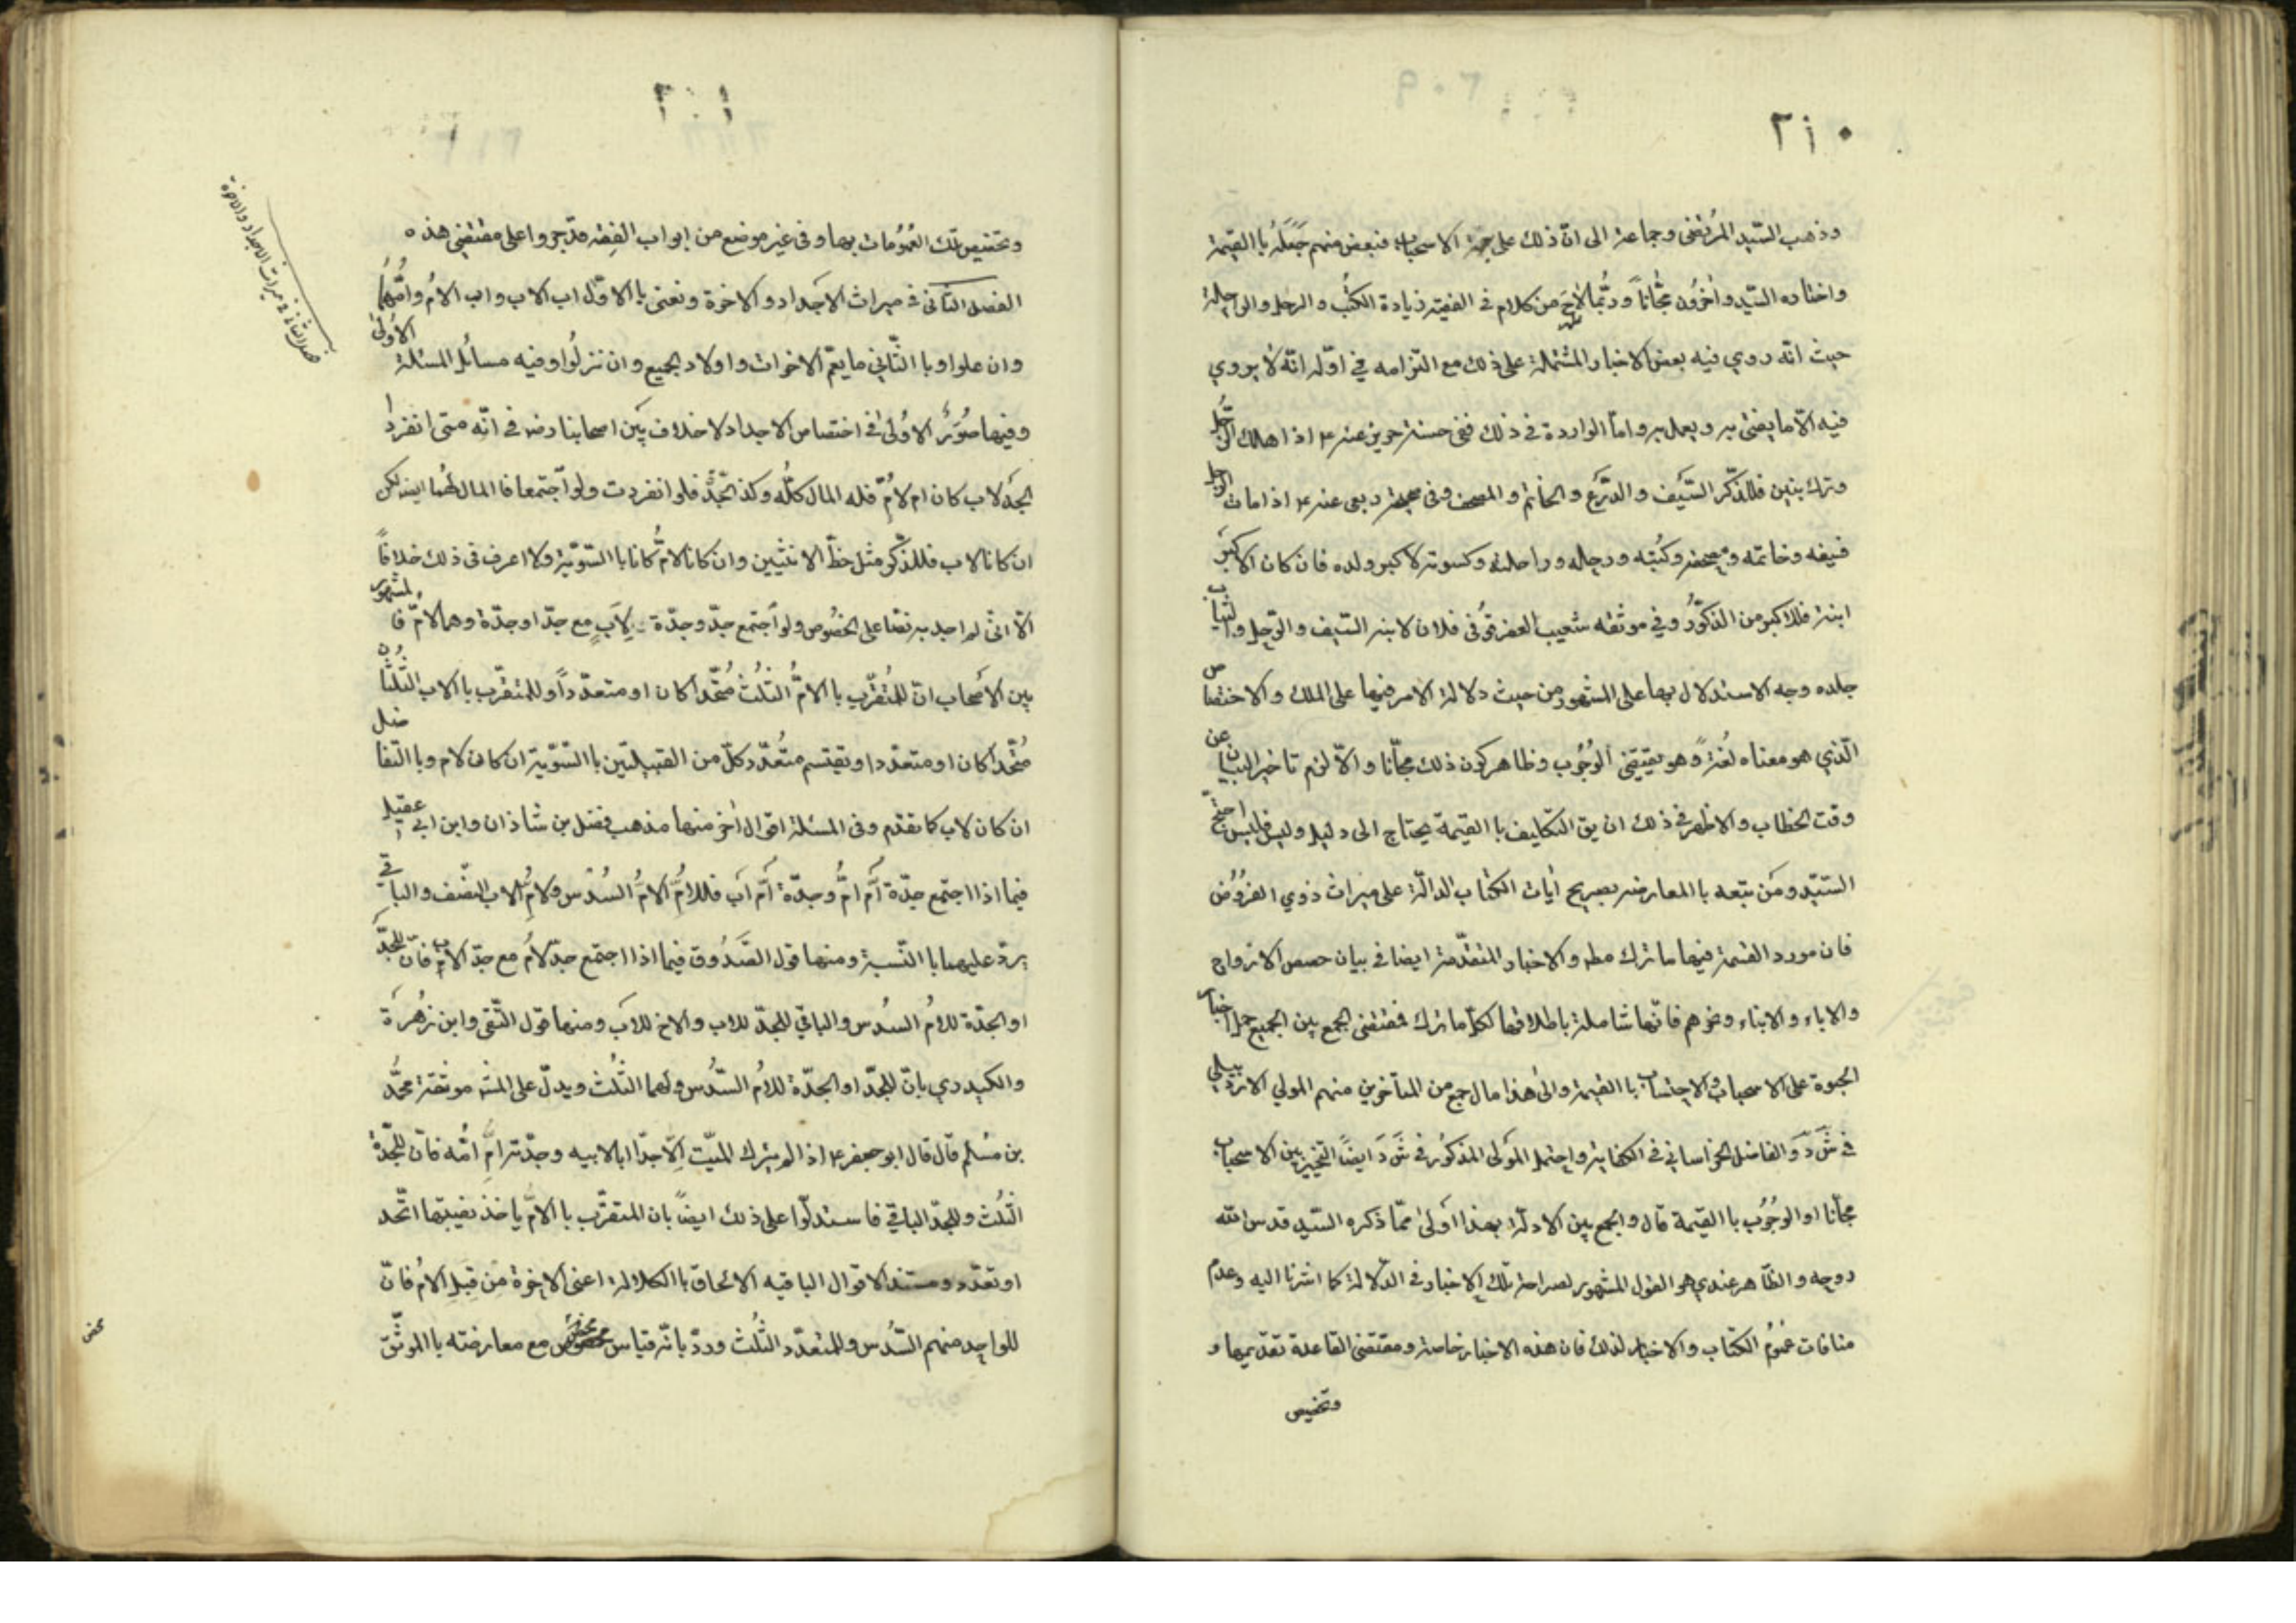 ٢١٠
وذهب السّيد المرتضى وجماعة الى انّ ذلك على جهة الاستحباب فبعض منهم جَعَلَهُ باالقيمة
واختاره السّيد واخرُون مجّاناً وربّما لاحَ من كلام فى الفقيه زيادة الكتُب والرحل والراحلة
حيث انّه روي فيه بعض الاخبار المشتملة على ذلك مع التزامه في اوّله انّه لا يروي
فيه الّا ما يفتى به ويعمل به وامّا الواردة فى ذلك ففى حسنة حريز عنه ع اذا هلك الرّجُل
وترك بنين فللذّكر السّيف والدّرع والخاتم والمصحف وفى صحيحة ربعى عنه ع اذا مات الرجل
فسيفه وخاتمه ومصحفه وكتُبه ورحله وراحلته وكسوته لاكبر ولده فان كان الاكبَر
ابنة فللاكبر من الذكُور وفي موثقه شعيب العقرقُوفى فلان لابنه السّيف والرّحل والثياب
جلده وجه الاستدلال بها على المشهور من حيث دلالة الامر فيها على الملك والاختصاص
الّذي هو معناه لُغةً وهو يقتضى الوُجُوب وظاهر كون ذلك مجّانا والّا لزم تاخير البيان عن
وقت الخطاب والاظهر فى ذلك ان يق التكليف باالقيمة يحتاج الى دليل وليس فليس احتجّ
السّيّد ومَن تبعه باالمعارضه بصريح أيات الكتاب الدالّة على ميراث ذوي الفروُض
فان مورد القسمة فيها ما ترك مطه والاخبار المتقدّمة ايضا فى بيان حصص الازواج
والاباء والابناء ونحوهم فانّها شاملة باطلاقها لكلّ ما ترك فمقتضى الجمع بين الجميع حمل اخبار
الحبوة على الاستحباب والاحتساب باالقيمة والى هذا مال جمع من المتأخرين منهم المولي الاردبيلي
فى شَرح دَ والفاضل الخراسانى فى الكفاية واحتمل المَولى المذكُور فى شَرح دَ ايضاً التخيير بين الاستحباب
مجّانا او الوجُوب باالقيمة قال والجمع بين الادلّة بهذا اَولى ممّا ذكره السّيد قدس الله
روحه والظّاهر عندي هو القول المشهور لصراحة تلك الاخبار فى الدّلالة كما اشرنا اليه وعدم
منافات عُمُوم الكتاب والاخبار لذلك فان هذه الاخبار خاصة ومقتضى القاعدة تقديمها و
وتخصيص
وتخصيص تلك العُمُومات بها وفى غير موضع من ابواب الفقه قد جروا على مقتضى هذه ه
الفصل الثانى فى ميراث الاجداد والاخوة ونعنى باالاوّل اب الاب واب الامّ واُمّهُما
وان علوا وباالثّاني ما يعمّ الاخوات واولاد الجميع وان نزلُوا وفيه مسائل المسئلة الاُولى
وفيها صُوَرٌ الاُولى فى اختصاص الاجداد لا خلاف بَين اصحابنا رضه فى انّه متى انفرد
الجدّ لاب كان ام لامّ فله المال كلّه وكذا الجدّة فلو انفردت ولو اجتمعا فاالمال لهُما ايضه لكن
ان كانا لاب فللذّكر مثل حظّ الانثيين وان كانا لامّ كانا باالسّويّة ولا اعرف فى ذلك خلافاً
الّا انّى لم اجد به نصّا على الخصُوص ولو اَجتمع جدّ وجدّة لِابٍ مع جدّ او جدّة وهما لامّ فاالمشهور
بين الاَصحاب انّ للمُتقرّب باالامُّ الثلُث مُتّحدا كان او متعدّداً وللمتقرّب باالاب الثّلثان
مُتّحدا كان او متعدّدا ويقتسم متُعدّد كلّ من القبيلتين باالسّويّة ان كان لام وباالتّفاضل
ان كان لاب كما تقدّم وفى المسئلة اقوال اُخر منها مذهب فضل بن شاذان وابن ابى عقيل
فيما اذا اجتمع جدّة اُمّ امُّ وجدّة اُمّ اَب فللاُمِّ الامُّ السُدْس ولامِّ الاب النصْف والباقي
يردّ عليهما باالنّسبة ومنها قول الصَدُوق فيما اذا اجتمع جدّ لاُم مع جدّ الاب فانّ للجدّ
او الجدّة للاُم السُدس والباقي للجدّ للاب والاخ للاَب ومنها قول التّقى وابن زُهْرَة
والكيدري بانّ للجدّ او الجدّة للامُ السّدُس ولهما الثلُث ويدلّ على المشه موثقة محمّد
بن مُسلم قال قال ابو جعفر ع اذا لم يترك الميّت اِلّا جدّا ابا لابيه وجدّته امِّ امّه فانّ للجدّة
الثلُث وللجدّ الباقي فاستدلّوا على ذلك ايضاً بان المتقرّب باالامّ ياخذ نصيبها اتّحد
او تعدّد ومستند الاقوال الباقيه الالحاق باالكلالة اعنى الاخوة مِن قِبَلِ الاُم فانّ
للواحد منهم السّدُس وللمتعدّد الثُلث وردّ بانّه قياس محض مع معارضته باالموثّق
فصل الثانى فى ميراث الاجداد والاخوة
محض